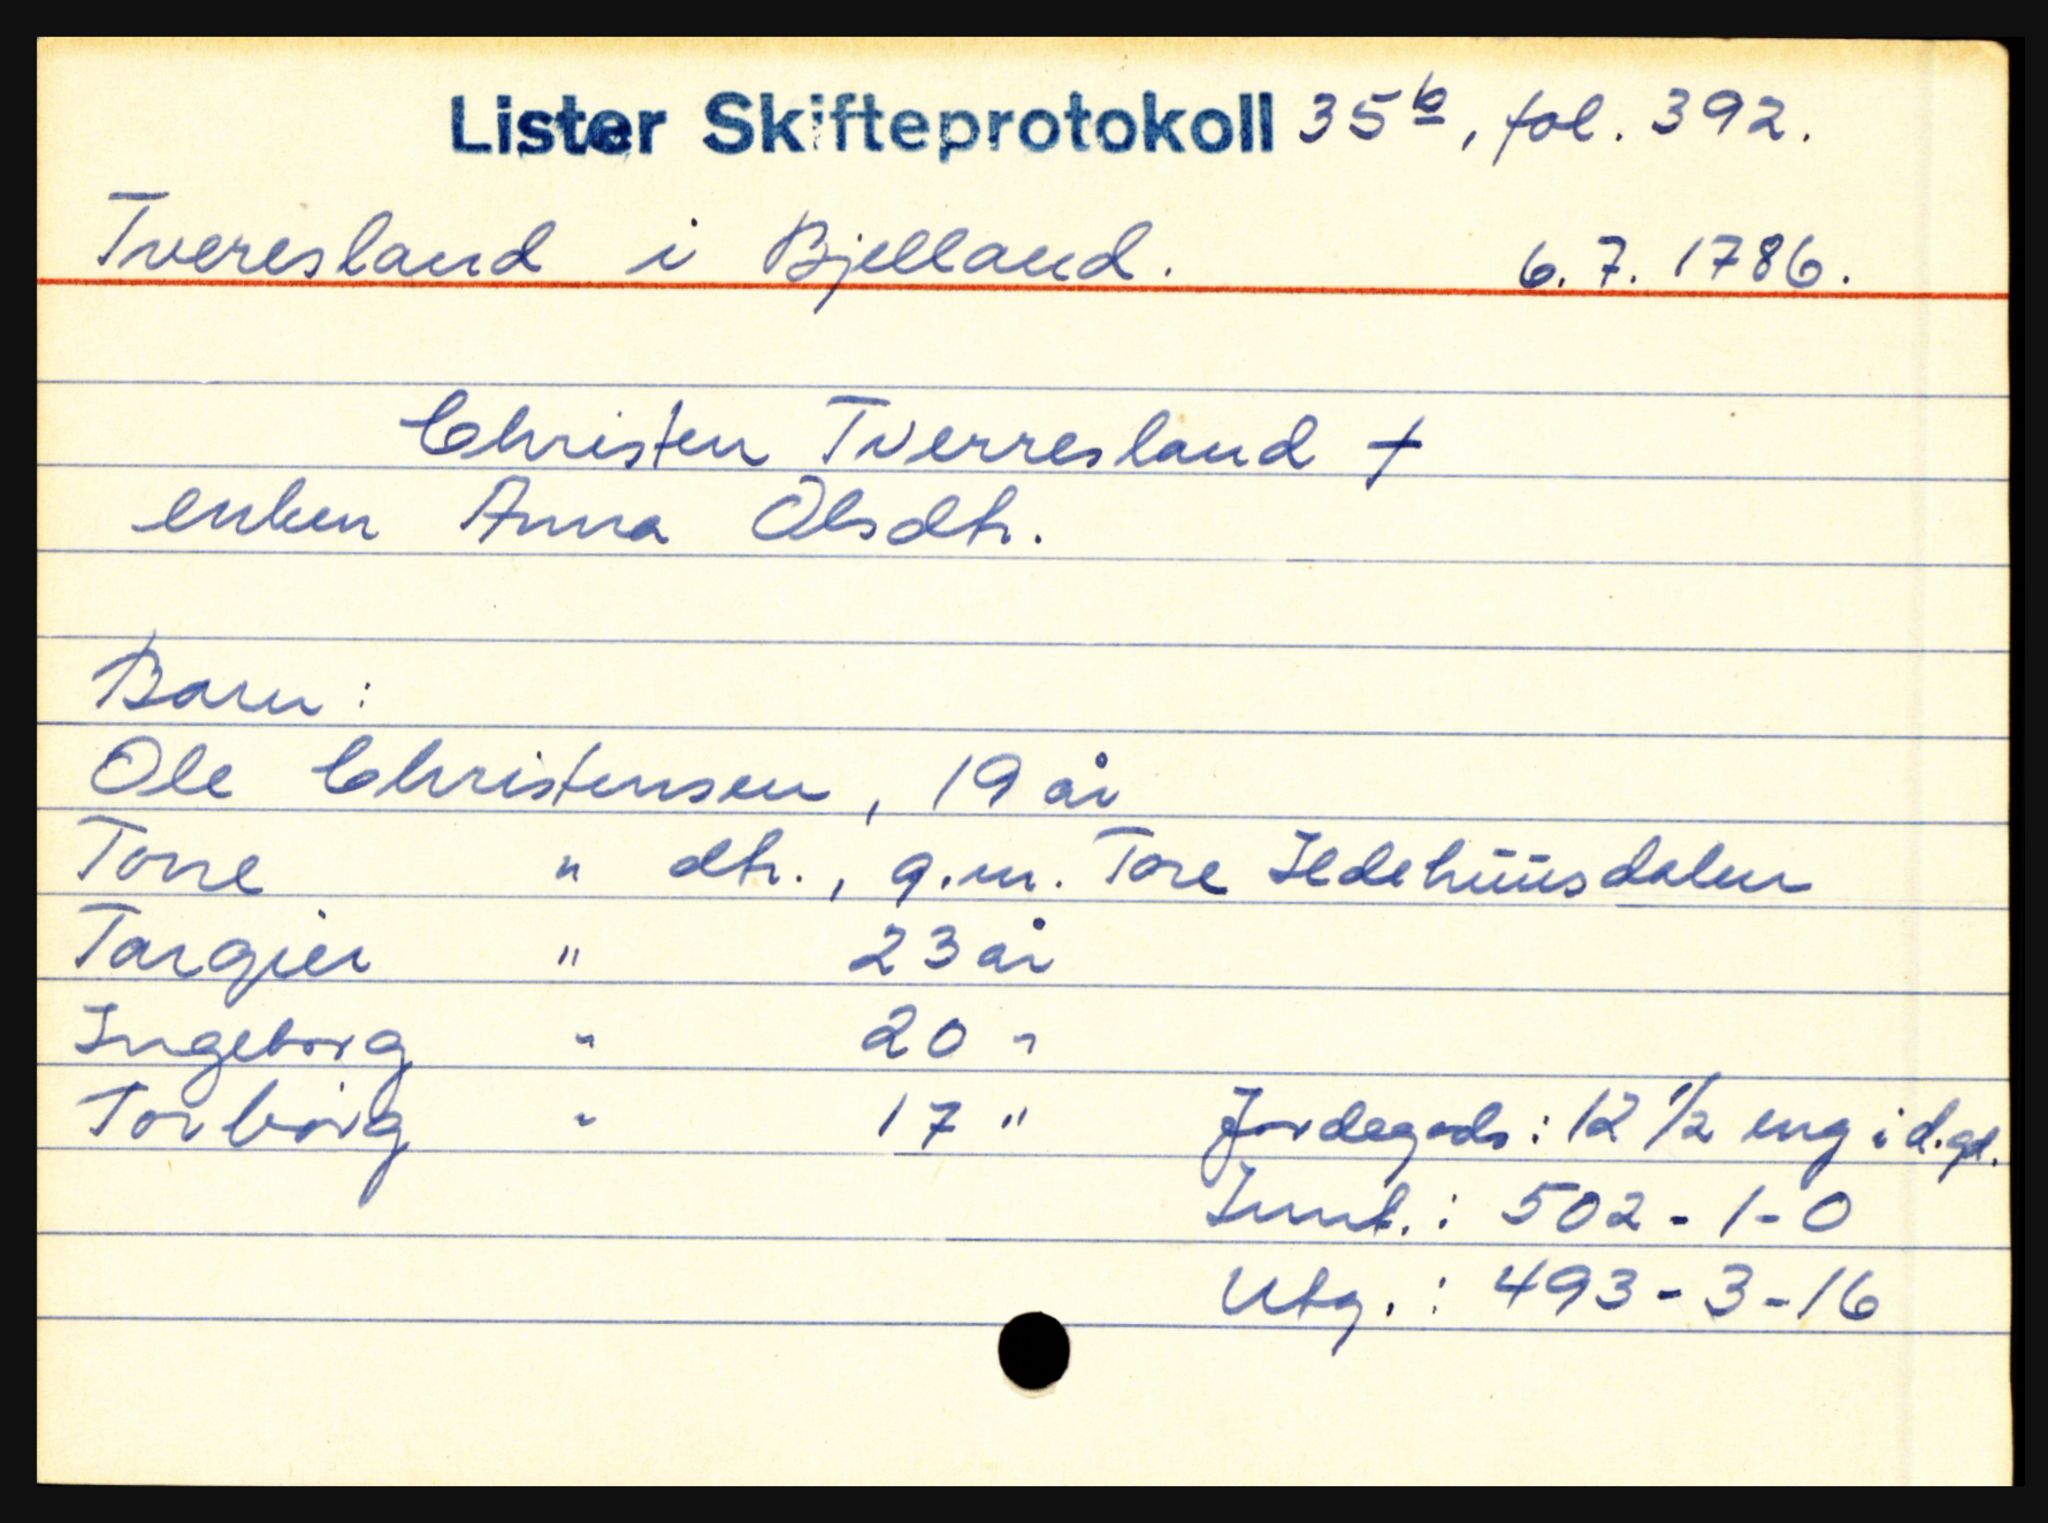 Lister Skifteprotokoll 35b, fol. 392.
Tveresland i Bjelland. 6.7.1786.
Christen Tverresland †
enken Anna Olsdtr.
Barn:
Ole Christensen, 19 år
Tone " dtr., g.m. Tore Ildehüüsdalen
Targier " 23 år
Ingeborg " 20 "
Torborg " 17 " Jordegods: 12 1/2 eng i d. gd.
Innt.: 502-1-0
Utg.: 493-3-16